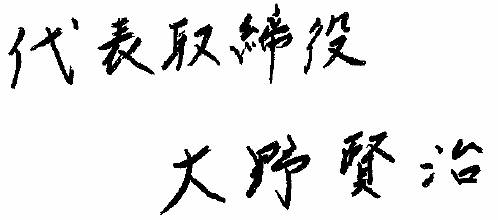 代表取締役
大野賢治